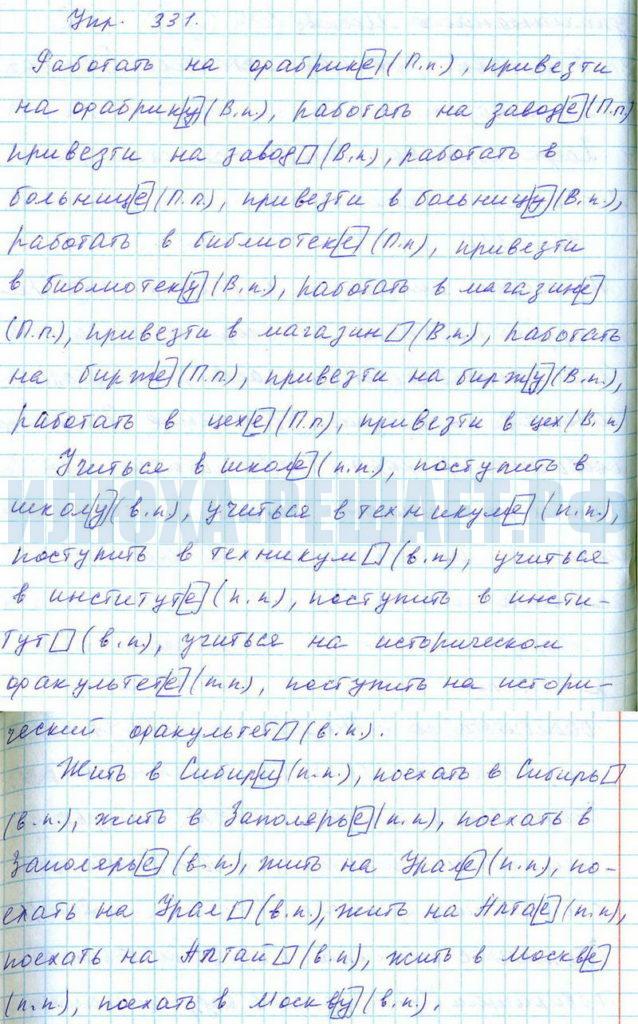 Упр. 331.
Работать на фабрике (П.п.), привезти
на фабрику (В.п), работать на заводе (П.п)
привезти на завод▢ (В.п), работать в
больнице (П.п.), привезти в больницу (В.п.),
работать в библиотеке (П.п), привезти
в библиотеку (В.п.), работать в магазине
(П.п.), привезти в магазин▢ (В.п), работать
на бирже (П.п.), привезти на биржу (В.п.),
работать в цехе (П.п), привезти в цех (В.п)
Учиться в школе (п.п.), поступить в
школу (в.п), учиться в техникуме (п.п.),
поступить в техникум▢ (в.п), учиться
в институте (п.п), поступить в инсти-
тут▢ (в.п), учиться на историческом
факультете (п.п.), поступить на истори-
ческий факультет▢ (в.п.).
Жить в Сибири (п.п.), поехать в Сибирь▢
(в.п.), жить в Заполярье (п.п), поехать в
Заполярье (в.п.), жить на Урале (п.п), по-
ехать на Урал▢ (в.п.), жить на Алтае (п.п),
поехать на Алтай▢ (в.п.), жить в Москве
(п.п.), поехать в Москву (в.п.).
ИЛЮХА-РЕШАЕТ.РФ